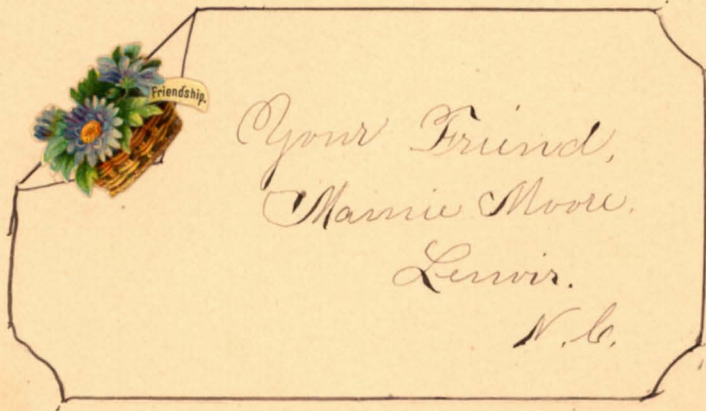 Friendship.
Your Friend,
Mamie Moore.
Lenoir.
N.C.